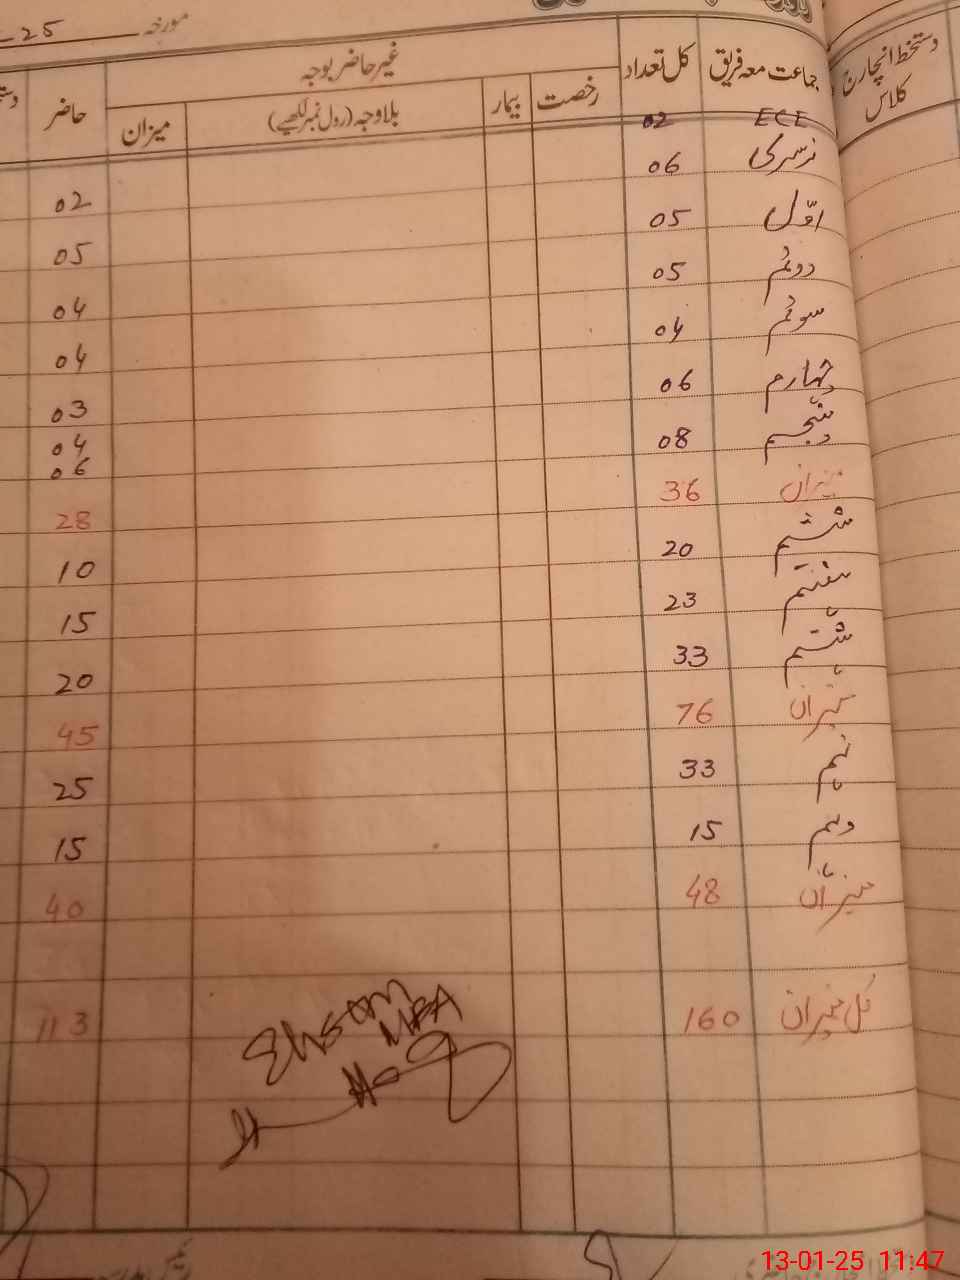 مورخہ -25
دستخط انچارج کلاس
جماعت معہ فریق کل تعداد غیر حاضر بوجہ حاضر
رخصت بیمار بلاوجہ (رول نمبر لکھیے) میزان
ECE 02 02
نرسری 06 05
اوّل 05 04
دوئم 05 04
سوئم 04 03
چہارم 06 04
پنجم 08 06
میزان 36 28
ششم 20 10
ہفتم 23 15
ہشتم 33 20
میزان 76 45
نہم 33 25
دہم 15 15
میزان 48 40
کل میزان 160 113
Ehsan
MEA
13-01-25 11:47